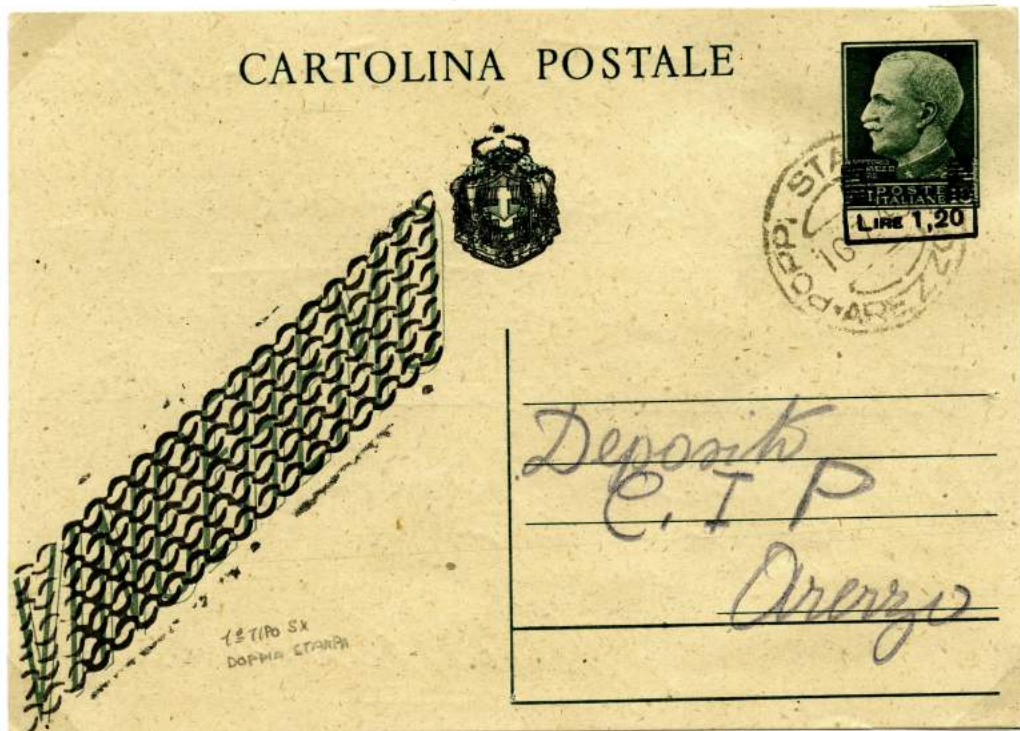 CARTOLINA POSTALE
POSTE
ITALIANE
LIRE 1,20
POPPI STA
10
AREZZO
Deposito
C. I P
Arezzo
1º TIPO SX
DOPPIA STAMPA